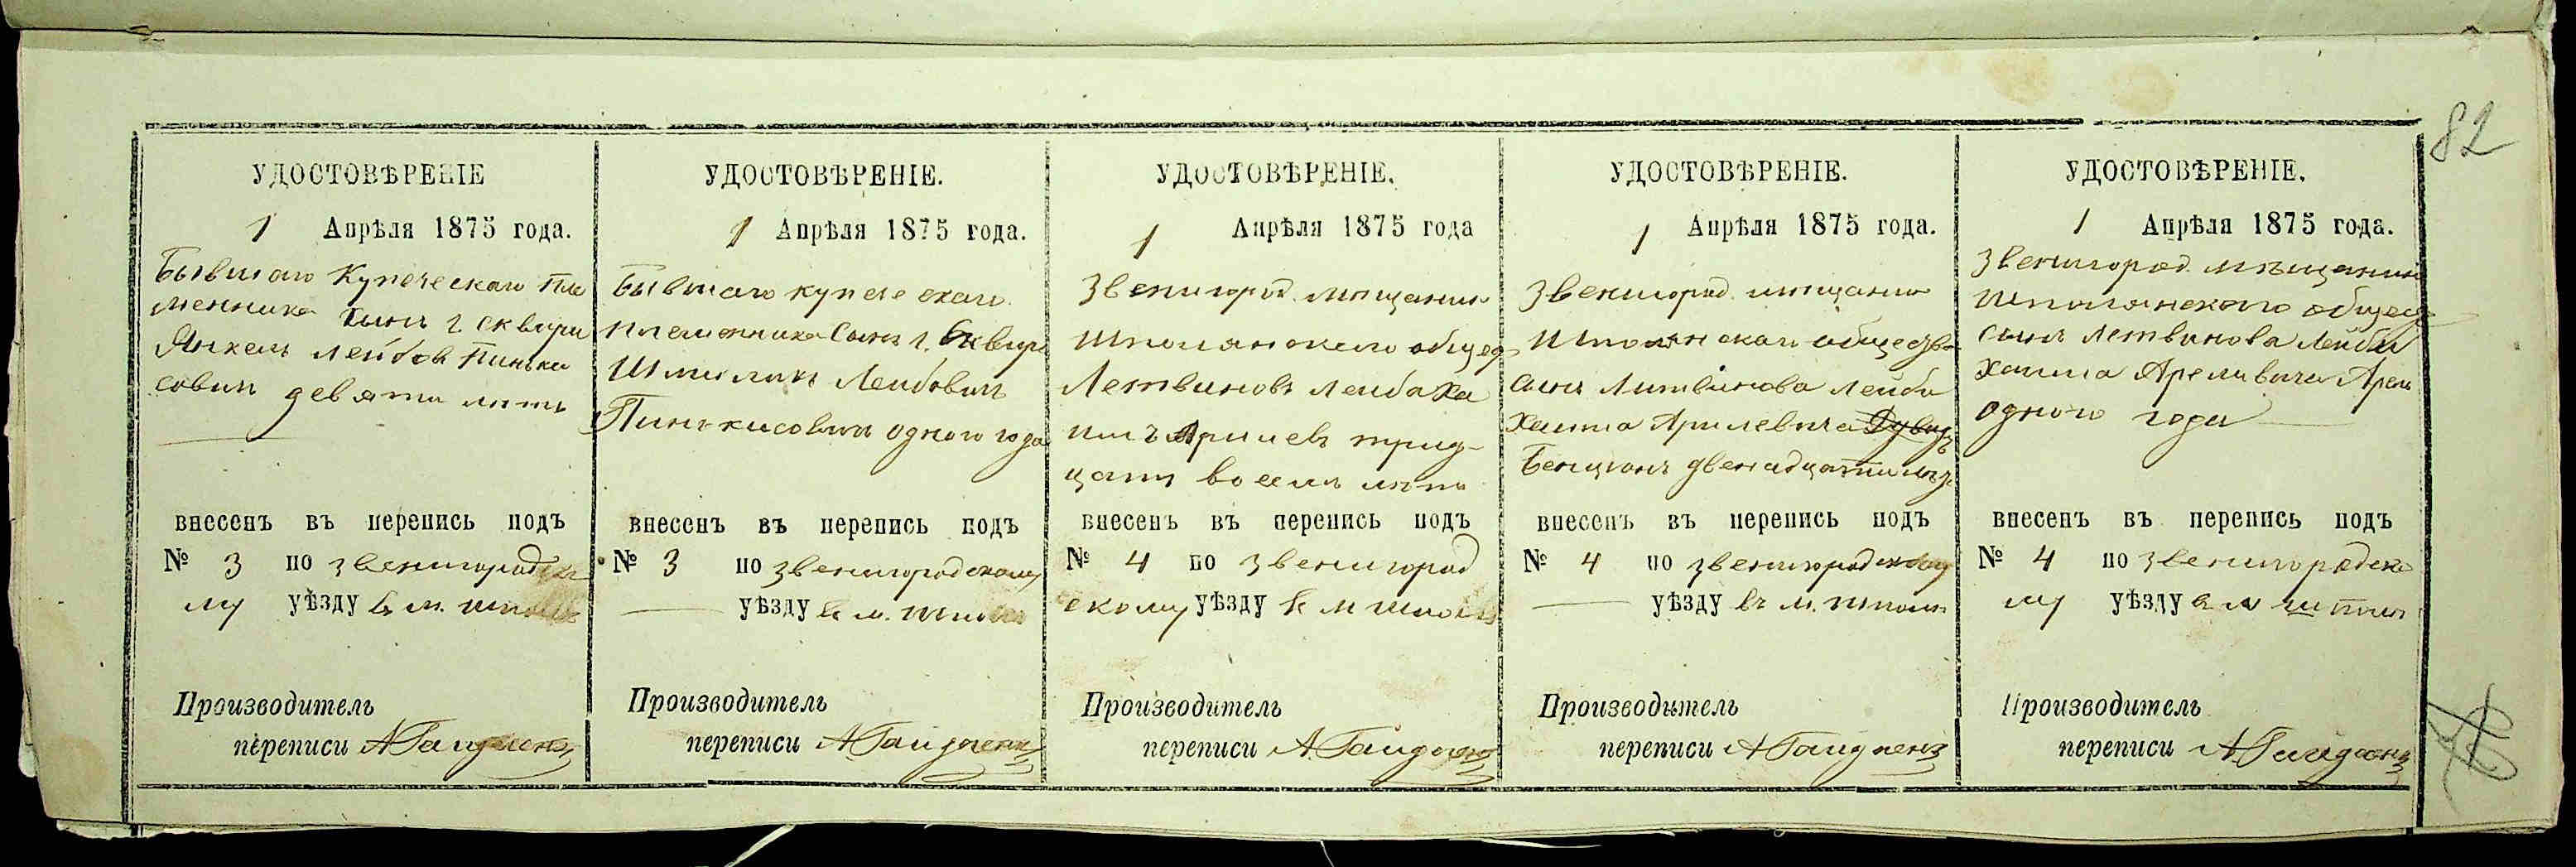 82
УДОСТОВѢРЕНІЕ
1 Апрѣля 1875 года.
Бывшаго Купеческаго пле
менника сынъ г. Сквиры
Янкель Лейбовъ Пинька
совичъ девяти лѣтъ
внесенъ въ перепись подъ
№ 3 по Звенигородско
му уѣзду въ м. Шполѣ
Производитель
переписи А Гайдаенко
УДОСТОВѢРЕНІЕ.
1 Апрѣля 1875 года.
Бывшаго купеческаго
племенника Сынъ г. Сквиры
Шмиликъ Лейбовичъ
Пинькисовичъ одного года
внесенъ въ перепись подъ
№ 3 по Звенигородскому
уѣзду въ м. Шполѣ
Производитель
переписи А Гайдаенко
УДОСТОВѢРЕНІЕ.
1 Апрѣля 1875 года
Звенигород. мѣщанинъ
Шполянскаго общес
Летвиновъ Лейба Ха
имъ Арилевъ трид-
цати восемъ лѣтъ
внесенъ въ перепись подъ
№ 4 по Звенигород
скому уѣзду въ м Шполѣ
Производитель
переписи А. Гайдаенко
УДОСТОВѢРЕНІЕ.
1 Апрѣля 1875 года.
Звенигород. мѣщанин
Шполянскаго общества
сынъ Литвинова Лейбы
Хаима Арилевича Дувидъ
Бенционъ двенадцати лѣтъ
внесенъ въ перепись подъ
№ 4 по Звенигородскому
уѣзду въ м. Шполѣ
Производитель
переписи А Гайдаенко
УДОСТОВѢРЕНІЕ.
1 Апрѣля 1875 года.
Звенигород. мѣщанинъ
Шполянскаго общес
сынъ Летвинова Лейбы
Хаима Арелевича Арель
одного года
внесенъ въ перепись подъ
№ 4 по Звенигородско
му уѣзду в м Шполѣ
Производитель
переписи А. Гайдаенко